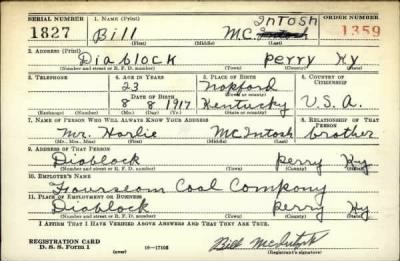 SERIAL NUMBER 1. NAME (Print) ORDER NUMBER
1827 Bill McIntosh Intosh 1359
(First) (Middle) (Last)
2. ADDRESS (Print)
Diablock Perry Ky
(Number and street or R. F. D. number) (Town) (County) (State)
3. TELEPHONE 4. AGE IN YEARS 5. PLACE OF BIRTH 6. COUNTRY OF CITIZENSHIP
23 Napford
DATE OF BIRTH
8 8 1917 Kentucky U.S.A.
(Exchange) (Number) (Mo.) (Day) (Yr.) (State or country)
7. NAME OF PERSON WHO WILL ALWAYS KNOW YOUR ADDRESS 8. RELATIONSHIP OF THAT PERSON
Mr. Harlie McIntosh brother
(Mr., Mrs., Miss) (First) (Middle) (Last)
9. ADDRESS OF THAT PERSON
Diablock Perry Ky
(Number and street or R. F. D. number) (Town) (County) (State)
10. EMPLOYER'S NAME
Fourseam Coal Company
11. PLACE OF EMPLOYMENT OR BUSINESS
Diablock Perry Ky
(Number and street or R. F. D. number) (Town) (County) (State)
I AFFIRM THAT I HAVE VERIFIED ABOVE ANSWERS AND THAT THEY ARE TRUE.
REGISTRATION CARD
D. S. S. Form 1 (over) 16—17105 Bill McIntosh
(Registrant's signature)